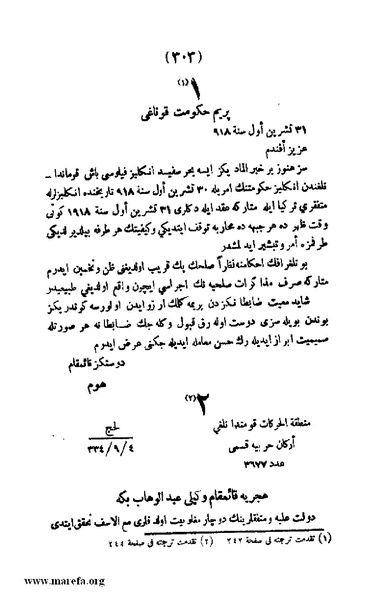 (٣٠٣)
١ (١)
پريم حكومت قوناغى
٣١ تشرين أول سنة ٩١٨
عزيز أفندم
سز هنوز بر خبر الماد يكز ايسه بحر سفيد انكليز فيلوسى باش قوماندا ــ
قلغندن انكليز حكومتنك امريله ٣٠ تشرين أول سنة ٩١٨ تاريخنده انكليزلرله
متفقرى تركيا ايله متاركه عقد ايله دكلرى ٣١ تشرين أول سنة ١٩١٨ كونى
وقت ظهر ده هر جبهه ده محاربه توقف ايتديكى وكيفيتك هر طرفه بيلديرلديكى
طرفمزه أمر وتبشير ايد لمشدر
بو تلغرافك احكامنه نظراً صلحك پك قريب اولديغنى ظن وتخمين ايدرم
متاركه صرف مذاكرات صلحيه نك اجراسى ايچون واقع اولديغى طبيعيدر
شايد معيت ضابطا نكزدن بريمه كلمك ارزو ايدن اولورسه كوندريكز
بوندن بويله سزى دوست اوله رق قبول وكله جك ضابطا نه هر صورتله
صميميت ابراز ايديله رك حسن معامله ايديله جكنى عرض ايدرم
دوستكز قائمقام
هوم
٢ (٢)
منطقة الحركات قومندا نلغى
أركان حربيه قسمى
عدد ٣٦٧٧
لحج
٣٣٤/٩/٤
هجريه قائمقام وكيلى عبد الوهاب بكه
دولت عليه ومتفقلرينك دوچار مغلوبيت اولد قلرى مع الاسف تحقق ايتدى
(١) تقدمت ترجمته فى صفحة ٢٤٢ (٢) تقدمت ترجمته فى صفحة ٢٤٤
www.marefa.org